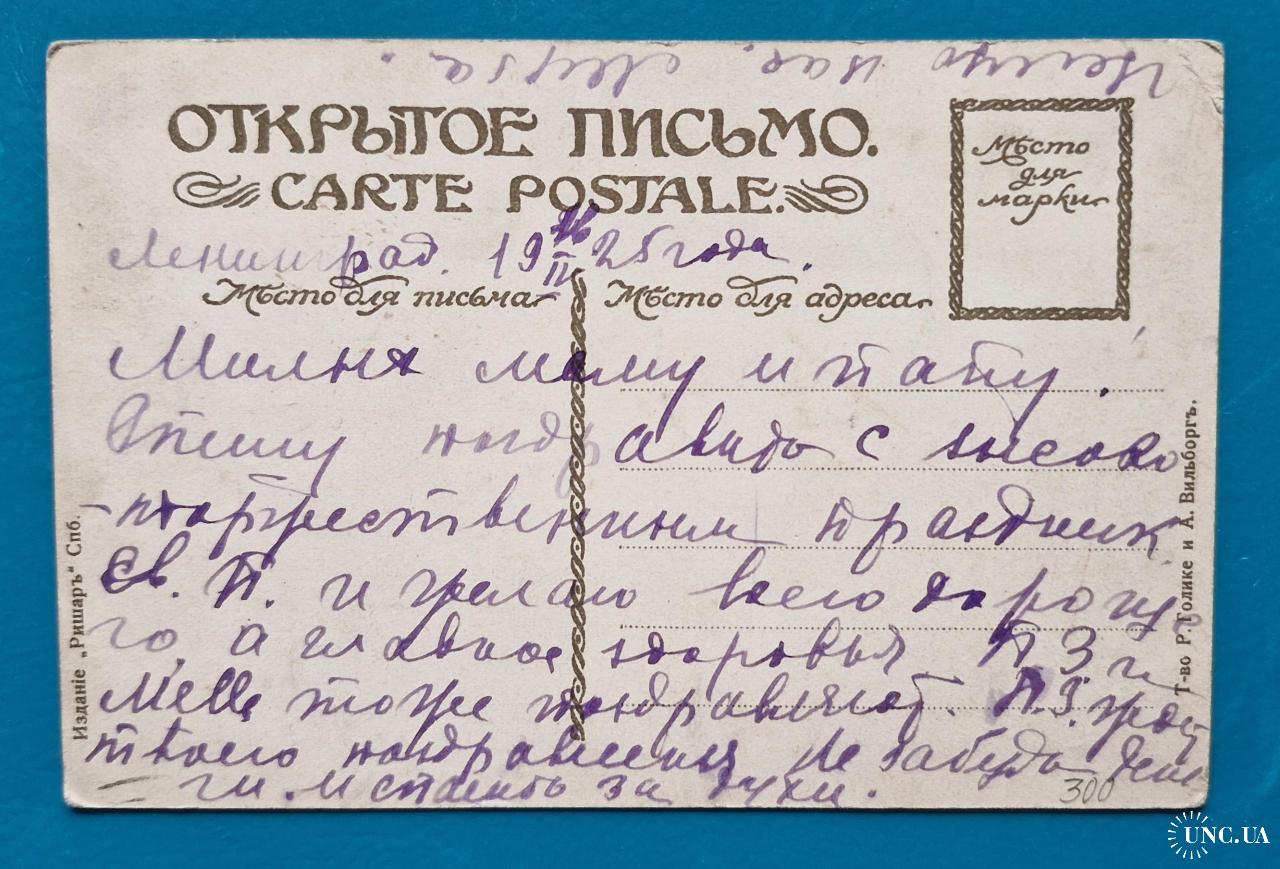 Целую вас.
ОТКРЫТОЕ ПИСЬМО.
CARTE POSTALE.
Мѣсто
для
марки
Ленинград. 19 II 25 года.
Мѣсто для письма
Мѣсто для адреса
маму и папу!
Спешу поздравить с высоко
-торжественным праздник
св. П. и желаю всего дорого
го, а главное здоровья П З и
тоже поздравляют. П.З. ждет
твоего поздравления Не забудь день
ги. И спасибо за духи.
300
Изданіе „Ришаръ“ Спб.
Т-во Р. Голике и А. Вильборгъ.
UNC.UA